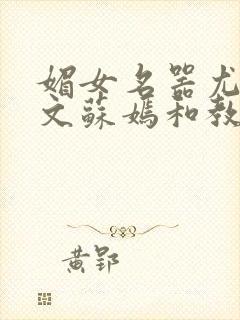 媚女名器尤
文蘇媽和教
黄郢